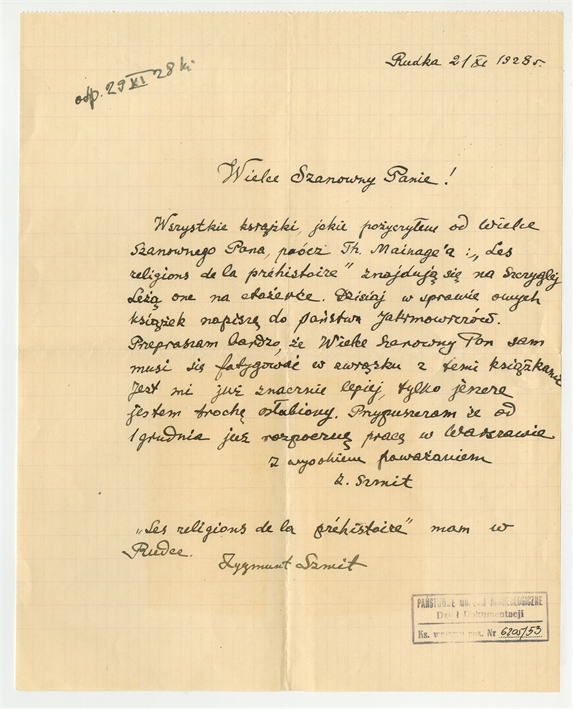 Rudka 21 XI 1928 r.
odp. 29 XI 28
Wielce Szanowny Panie!
Wszystkie książki, jakie pożyczyłem od Wielce
Szanownego Pana, prócz Th. Mainage'a: „Les
religions de la préhistoire" znajdują się na Szczyglej
Leżą one na etażerce. Dzisiaj w sprawie owych
książek napiszę do państwa Jakimowiczów.
Przepraszam bardzo, że Wielce Szanowny Pan sam
musi się fatygować w związku z temi książkami
Jest mi już znacznie lepiej, tylko jeszcze
jestem trochę osłabiony. Przypuszczam że od
1 grudnia już rozpocznę pracę w Warszawie
Z wysokiem poważaniem
Z. Szmit
„Les religions de la préhistoire" mam w
Rudce.
Zygmunt Szmit
PAŃSTWOWE MUZEUM ARCHEOLOGICZNE
Dział Dokumentacji
Ks. Nr 6205/53